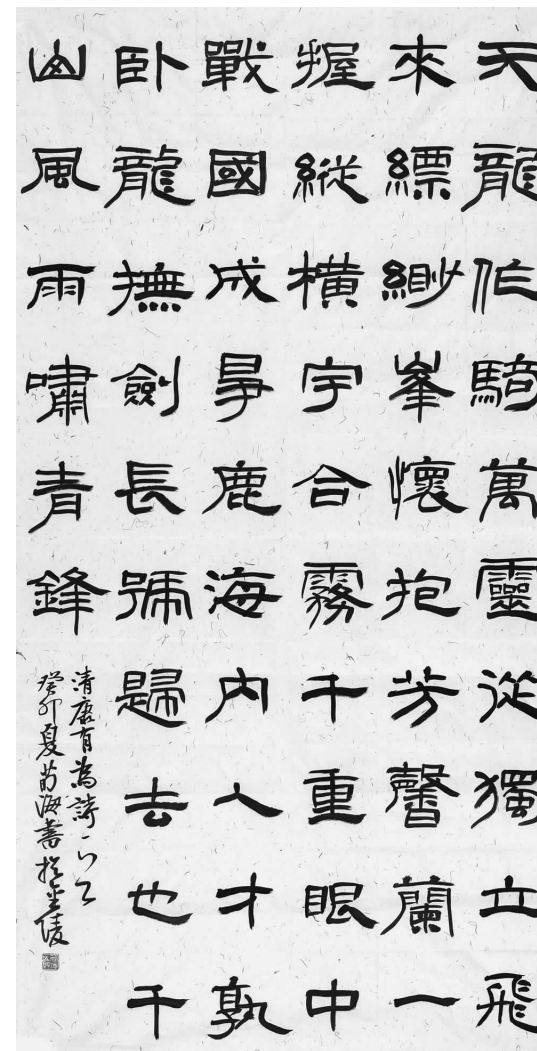 天龍作騎萬靈從獨立飛
來縹緲峯懷抱芳馨蘭一
握縱橫宇合霧千重眼中
戰國成爭鹿海內人才孰
卧龍撫劍長號歸去也千
山風雨嘯青鋒
清康有為詩一首
癸卯夏海書於金陵